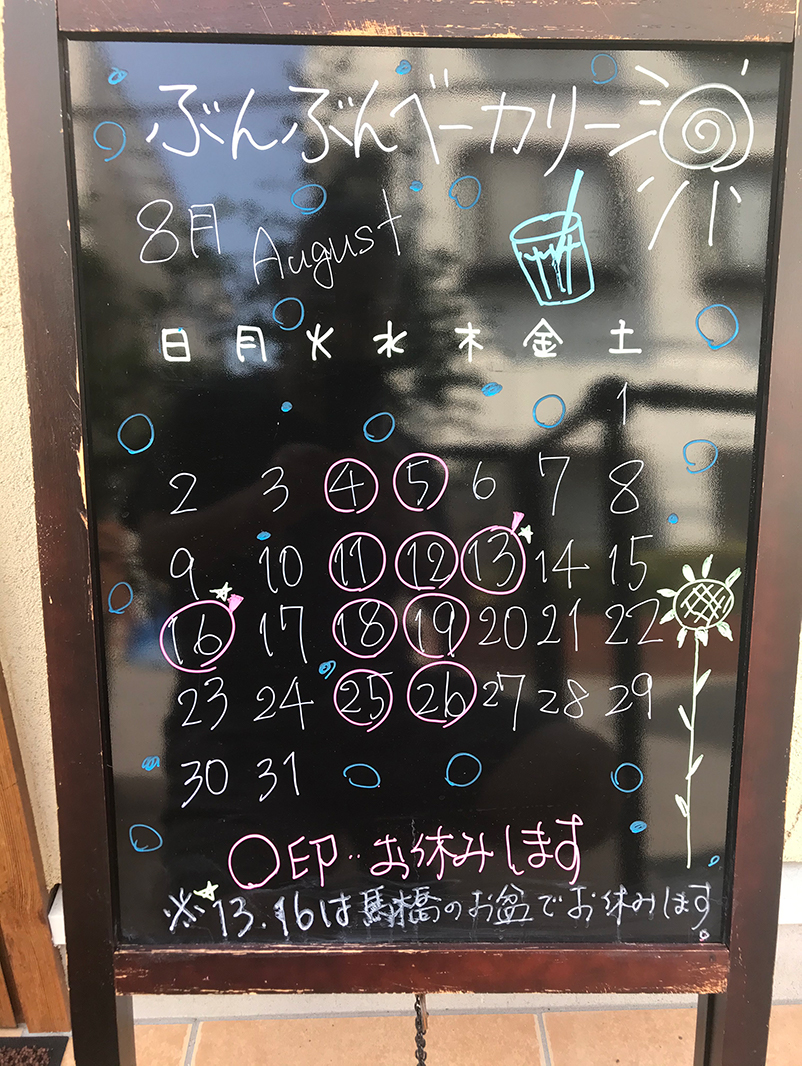 ぶんぶんベーカリー
8月 August
日 月 火 水 木 金 土
1
2 3 4 5 6 7 8
9 10 11 12 13 14 15
16 17 18 19 20 21 22
23 24 25 26 27 28 29
30 31
○印‥お休みします
※13.16は馬橋のお盆でお休みします。